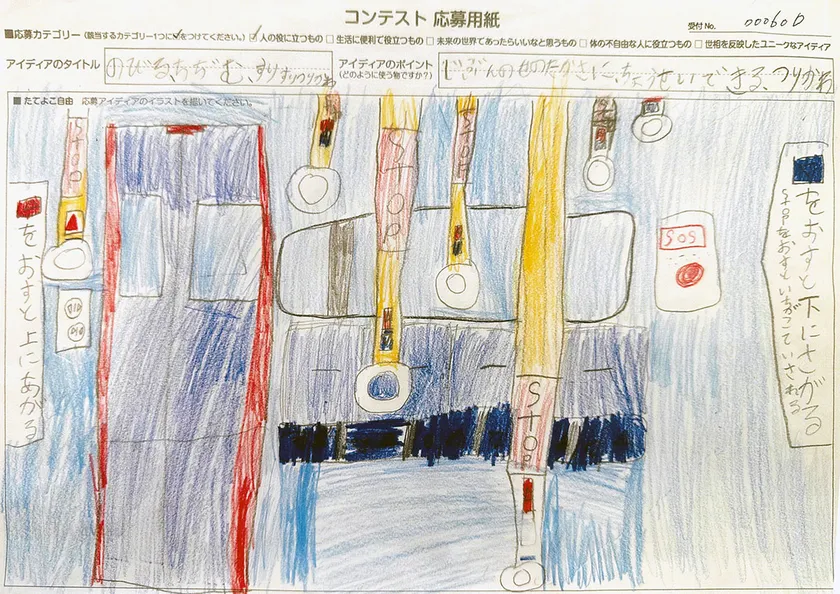 コンテスト 応募用紙
受付No. 000600
■応募カテゴリー (該当するカテゴリー1つに✓をつけてください。) ☑人の役に立つもの □生活に便利で役立つもの □未来の世界であったらいいなと思うもの □体の不自由な人に役立つもの □世相を反映したユニークなアイディア
アイディアのタイトル のびるちぢむ、すりすりつりかわ
アイディアのポイント (どのように使う物ですか?) じぶんのせのたかさに、ちょうせいできる、つりかわ
■たてよこ自由 応募アイディアのイラストを描いてください。
STOP
STOP
STOP
STOP
SOS
をおすと上にあがる
をおすと下にさがる
STOPをおすといちがこていされる